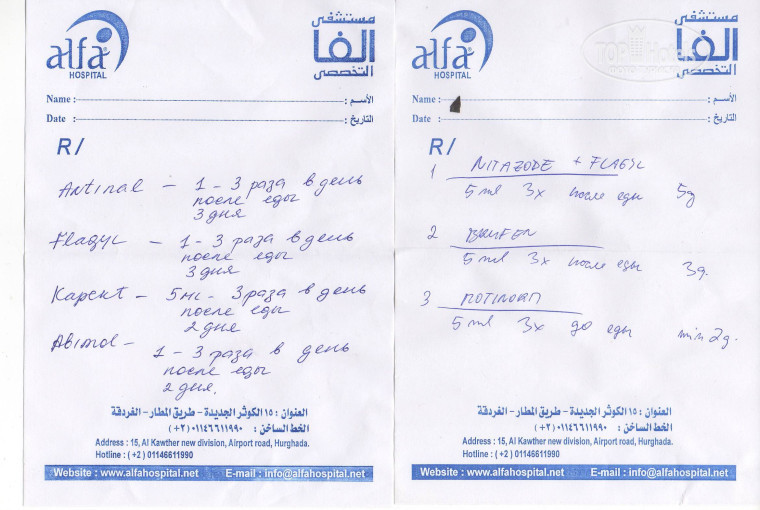 alfa
HOSPITAL
مستشفى
الفا
التخصصى
Name : الأسم :
Date : التاريخ :
R/
Antinal - 1 - 3 раза в день
после еды
3 дня
Flagyl - 1 - 3 раза в день
после еды
3 дня
Kapect - 5мл - 3 раза в день
после еды
2 дня
Abimol - 1 - 3 раза в день
после еды
2 дня.
العنوان : ١٥ الكوثر الجديدة - طريق المطار - الغردقة
الخط الساخن : ٠١١٤٦٦١١٩٩٠ (٢+)
Address : 15, Al Kawther new division, Airport road, Hurghada.
Hotline : ( +2 ) 01146611990
Website : www.alfahospital.net E-mail : info@alfahospital.net
alfa
HOSPITAL
مستشفى
الفا
التخصصى
TOP Hotels
Name : الأسم :
Date : التاريخ :
R/
1 NITAZODE + FLAGYL
5 ml 3x после еды 5д
2 BRUFEN
5 ml 3x после еды 3д.
3 MOTINORM
5 ml 3x до еды min 2д.
العنوان : ١٥ الكوثر الجديدة - طريق المطار - الغردقة
الخط الساخن : ٠١١٤٦٦١١٩٩٠ (٢+)
Address : 15, Al Kawther new division, Airport road, Hurghada.
Hotline : ( +2 ) 01146611990
Website : www.alfahospital.net E-mail : info@alfahospital.net